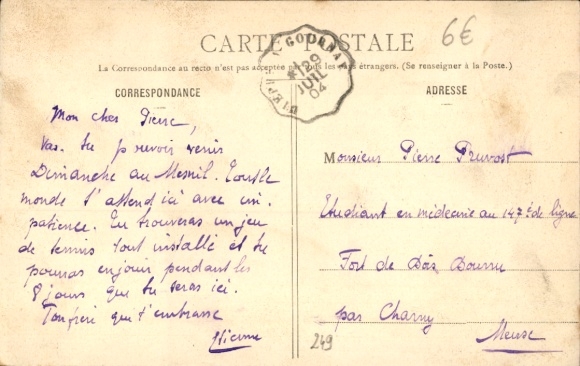 6€
CARTE POSTALE
DIEPPE A GOURNAY
29
JUIL
04
La Correspondance au recto n'est pas acceptée par tous les pays étrangers. (Se renseigner à la Poste.)
CORRESPONDANCE
Mon cher Pierre,
Vas-tu pouvoir venir
Dimanche au Mesnil. Tout le
monde t'attend ici avec im-
patience. Tu trouveras un jeu
de tennis tout installé et tu
pourras en jouir pendant les
8 jours que tu seras ici.
Ton frère qui t'embrasse
Etienne
ADRESSE
Monsieur Pierre Pruvost
Etudiant en médecine au 147e de ligne
Fort de Bois Bourru
par Charny
Meuse
249